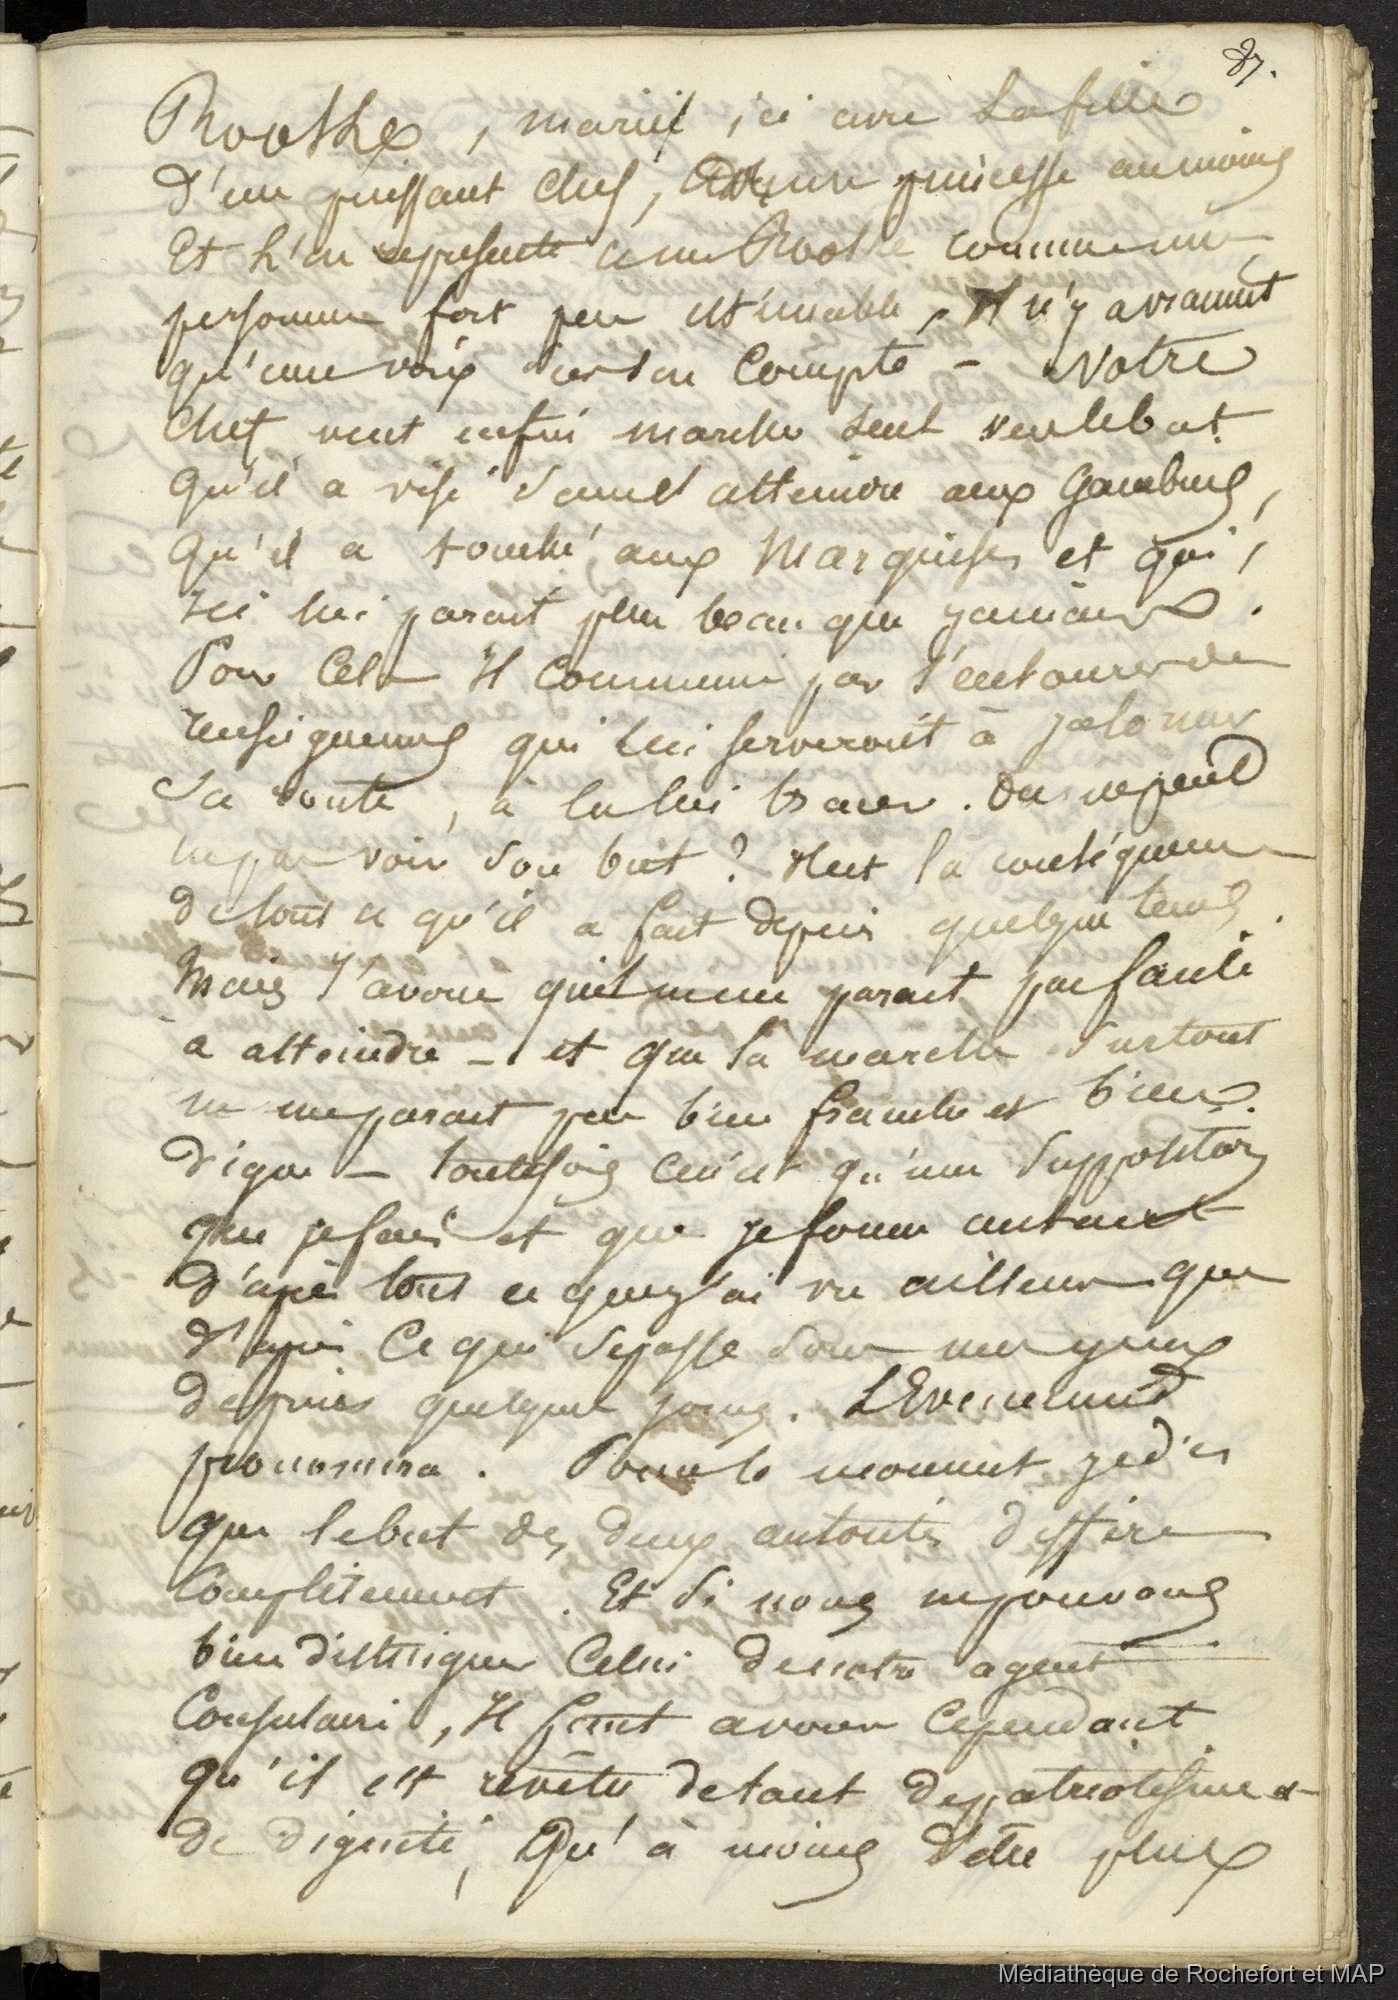 87.
Rooske, marié ici avec la fille
d'un puissant chef, avec une princesse au moins
Et l'on represente ce mr Rooske comme une
personne fort peu estimable. Il n'y a vraiment
qu'une voix sur son Compte - Notre
Chef veut enfin marcher seul vers le but
qu'il a visé sans l'atteindre aux Gambiers,
qu'il a touché aux Marquises et qui,
ici lui parait plus beau que jamais.
Pour Cela Il Commence par s'entourer de
renseignements qui lui serveront à jalonner
Sa route, à la lui tracer. On ne peut
ne pas voir son but? Il est la conséquence
de tout ce qu'il a fait depuis quelque tems.
Mais J'avoue qu'il ne me parait pas facile
a atteindre - et que la marche surtout
ne me parait pas bien franche et bien
digne - toutefois ce n'est qu'une supposition
que je fais et que je forme autant
d'après tout ce que j'ai vu ailleurs que
d'après Ce qui se passe sous mes yeux
depuis quelques jours. L'Evenement
prononcera. Pour le moment je dis
que le but des deux autorités differe
Complètement. Et si nous ne pouvons
bien distinguer Celui de notre agent
Consulaire, Il faut avouer Cependant
qu'il est revêtu de tant de patriotisme et
de dignité, Qu'à moins d'être plus
Médiathèque de Rochefort et MAP